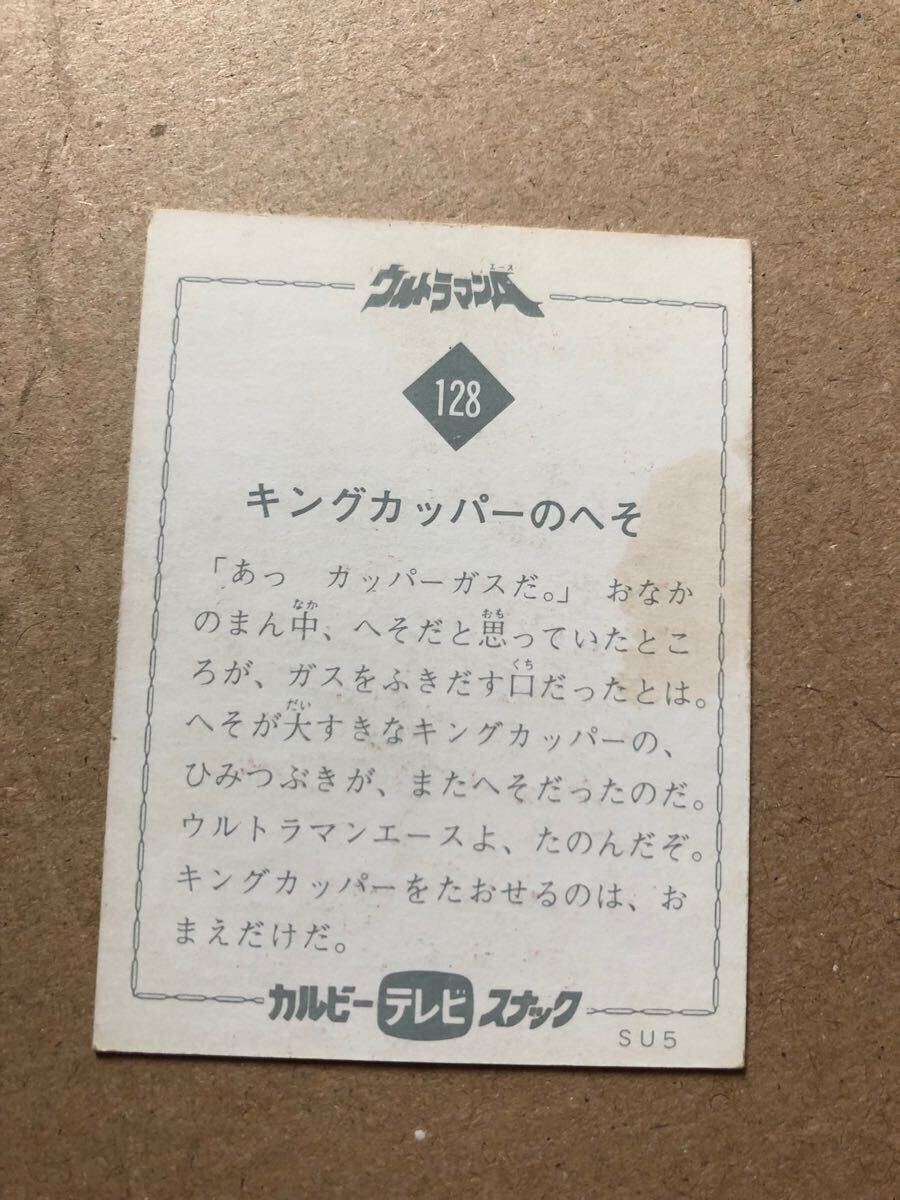 ウルトラマンA
エース
128
キングカッパーのへそ
「あっ　カッパーガスだ。」　おなか
のまん中、へそだと思っていたとこ
ろが、ガスをふきだす口だったとは。
へそが大すきなキングカッパーの、
ひみつぶきが、またへそだったのだ。
ウルトラマンエースよ、たのんだぞ。
キングカッパーをたおせるのは、お
まえだけだ。
カルビー テレビ スナック
SU5